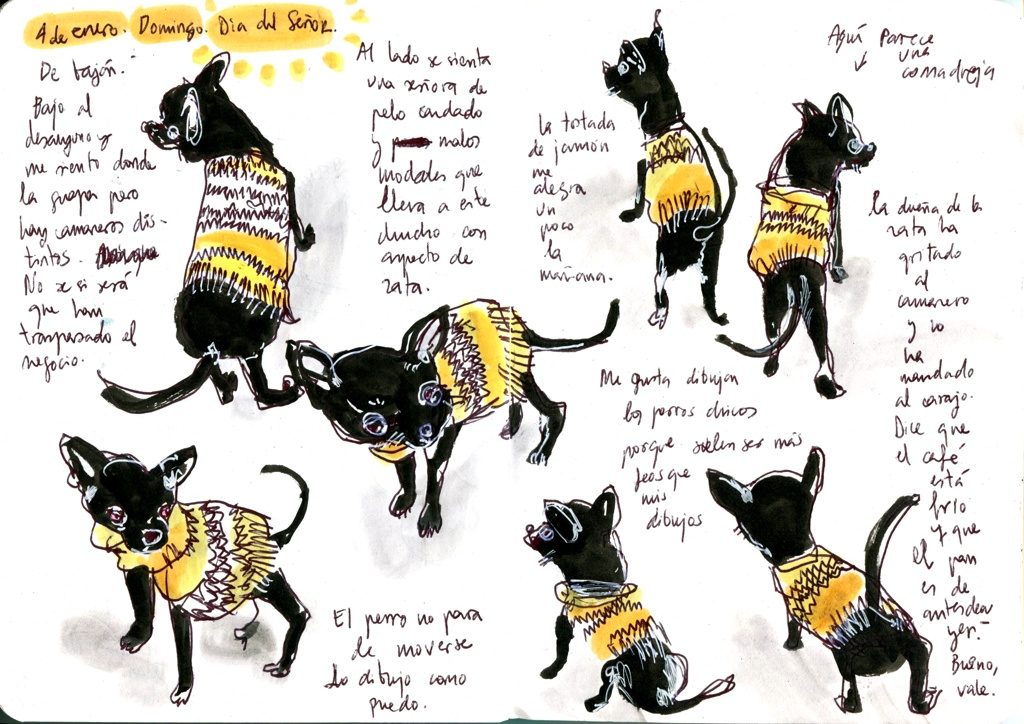 4 de enero. Domingo. Día del Señor.
De bajón.-
Bajo al
desayuno y
me siento donde
la guapa pero
hay camareros dis-
tintos.
No se si será
que han
traspasado el
negocio.
Al lado se sienta
una señora de
pelo cardado
y malos
modales que
lleva a este
chucho con
aspecto de
rata.
la tostada
de jamón
me
alegra
un
poco
la
mañana.
Aquí parece
una
comadreja
la dueña de la
rata ha
gritado
al
camarero
y lo
ha
mandado
al carajo.
Dice que
el café
está
frío
y que
el pan
es de
antesdeay
yer.-
Bueno,
vale.
Me gusta dibujar
los perros chicos
porque suelen ser más
feos que
mis
dibujos
El perro no para
de moverse
Lo dibujo como
puedo.